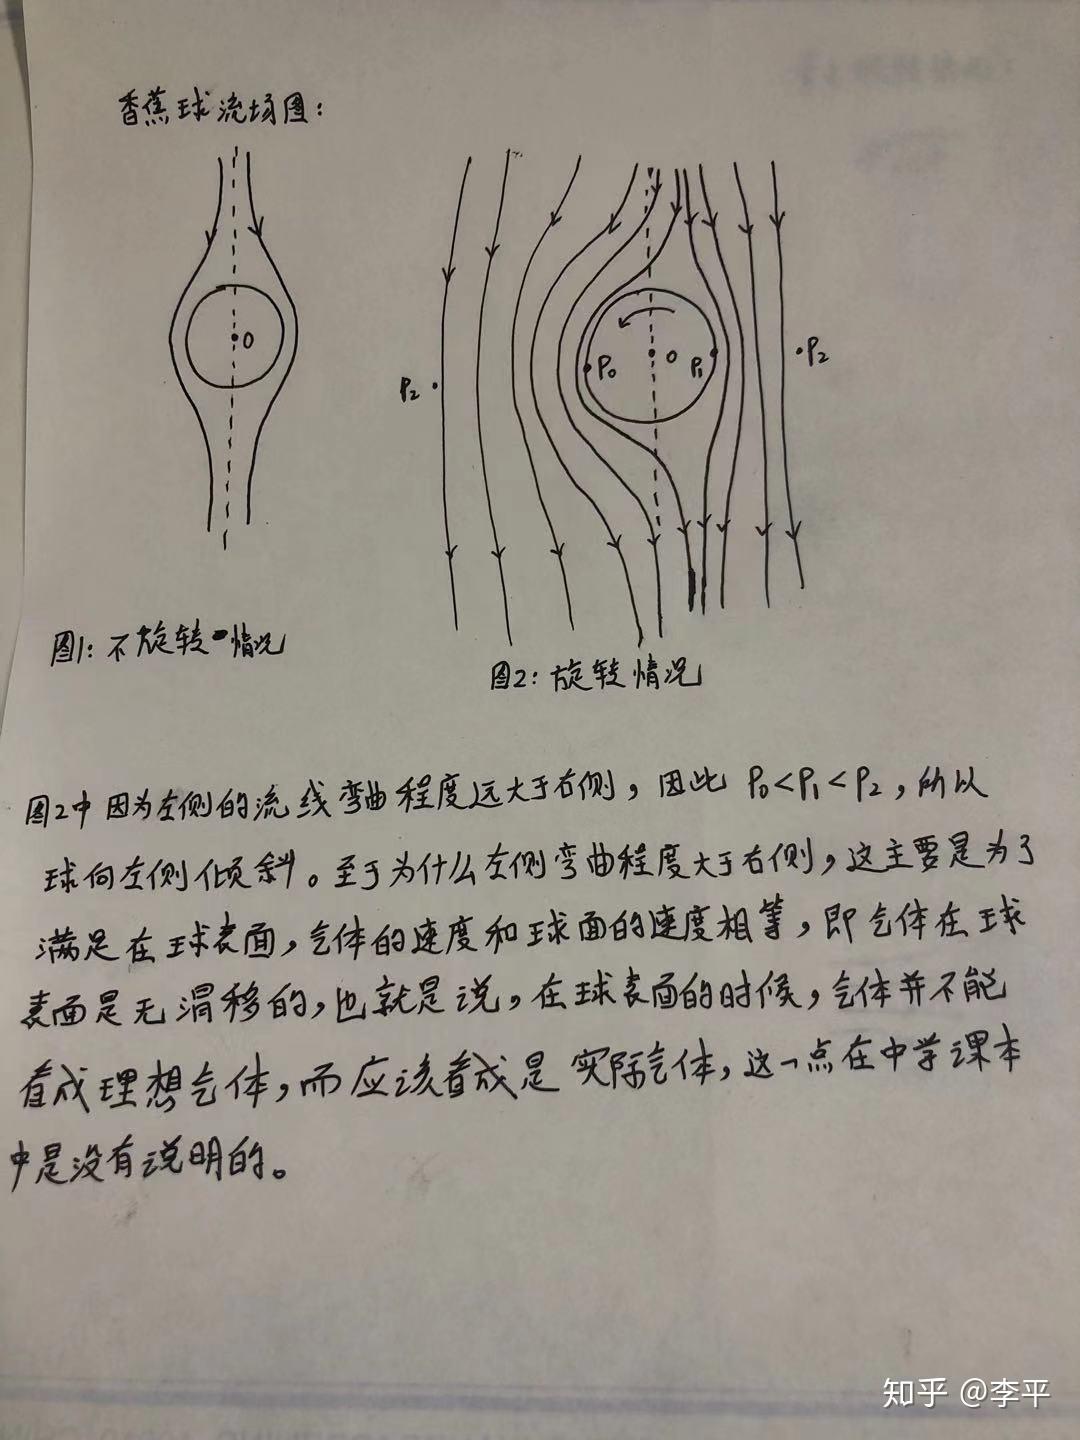 香蕉球流场图:
O
P₂
P₀
O
P₁
P₂
图1: 不旋转情况
图2: 旋转情况
图2中因为左侧的流线弯曲程度远大于右侧, 因此 P₀<P₁<P₂, 所以
球向左侧倾斜。至于为什么左侧弯曲程度大于右侧, 这主要是为了
满足在球表面, 气体的速度和球面的速度相等, 即气体在球
表面是无滑移的, 也就是说, 在球表面的时候, 气体并不能
看成理想气体, 而应该看成是实际气体, 这一点在中学课本
中是没有说明的。
知乎 @李平